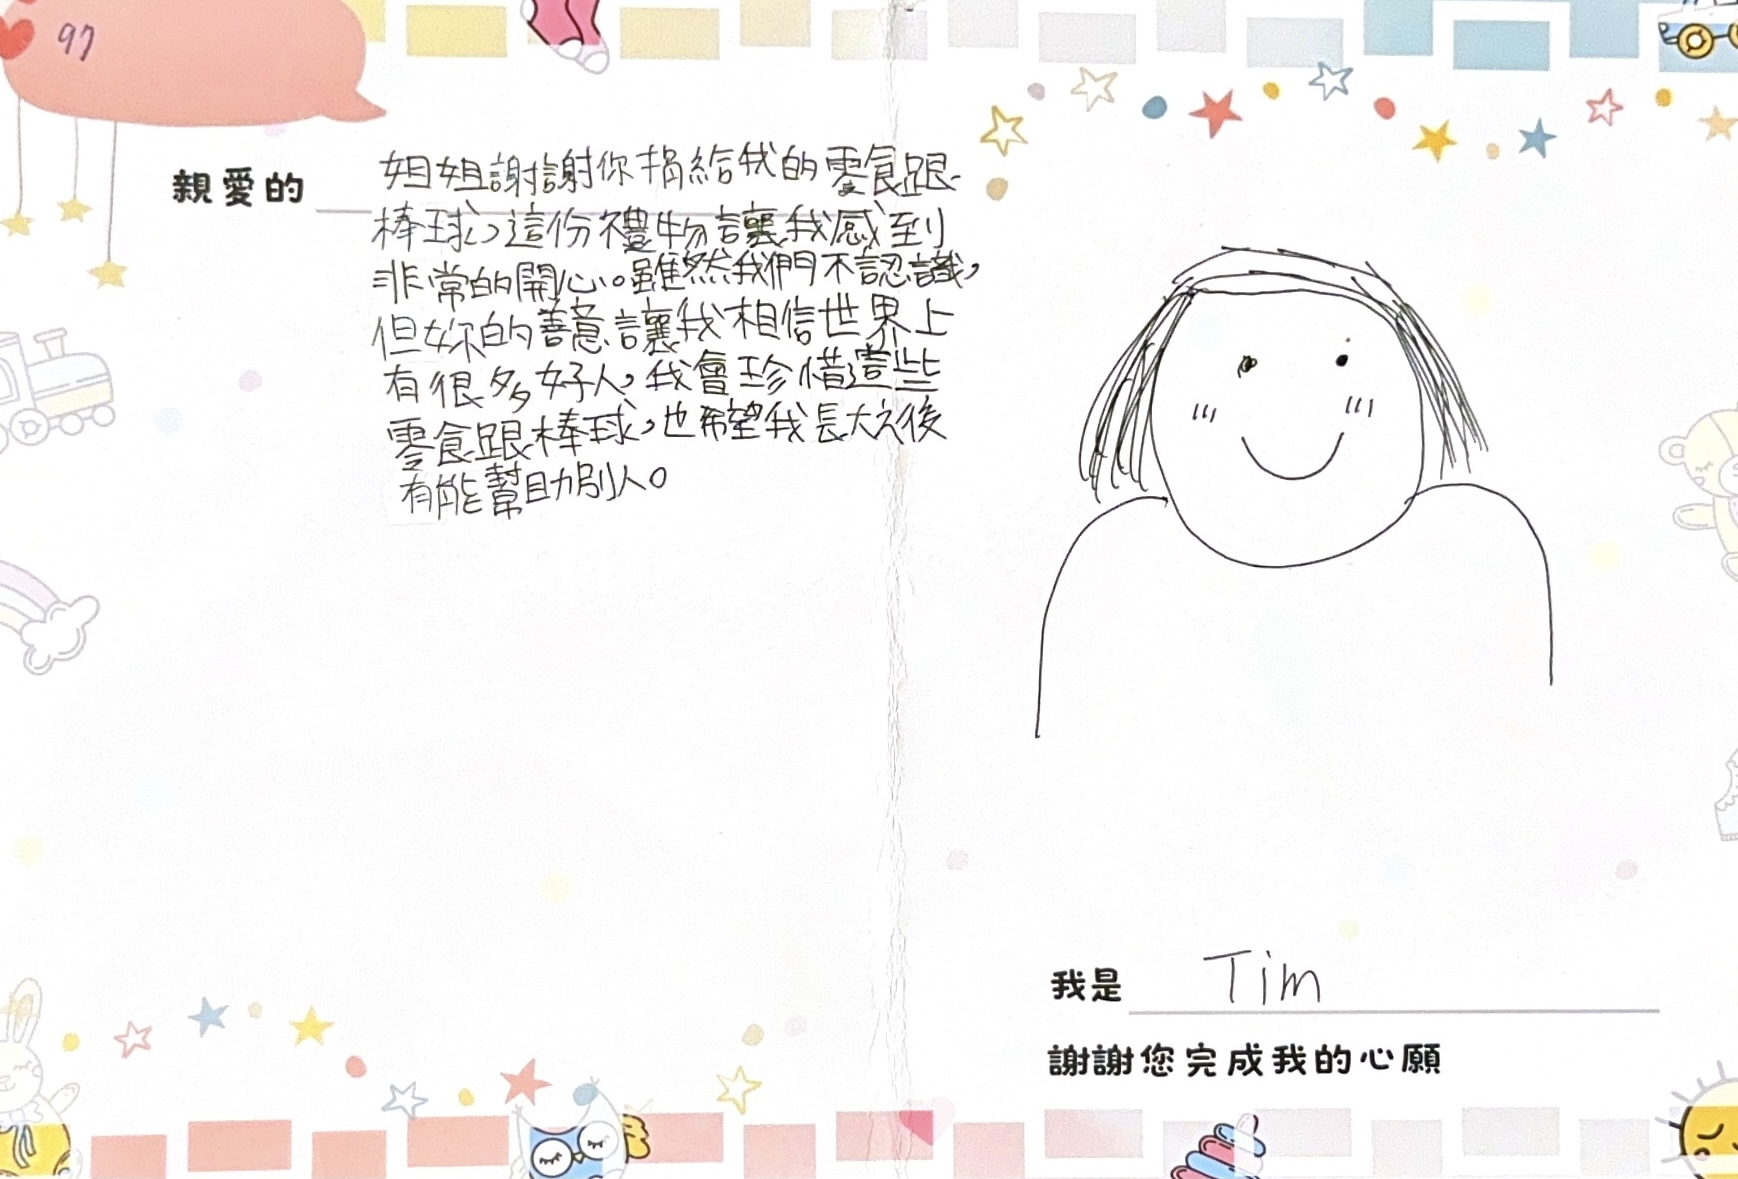 97
親愛的 姐姐謝謝你捐給我的零食跟
棒球,這份禮物讓我感到
非常的開心。雖然我們不認識,
但妳的善意讓我相信世界上
有很多好人,我會珍惜這些
零食跟棒球,也希望我長大以後
有能幫助別人。
我是 Tim
謝謝您完成我的心願